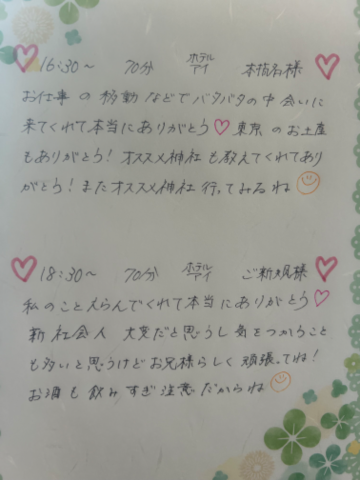 ♡16:30～ 70分 ホテルアイ 本指名様♡
お仕事の移動などでバタバタの中会いに
来てくれて本当にありがとう♡東京のお土産
もありがとう！オススメ神社も教えてくれてあり
がとう！またオススメ神社行ってみるね☺
♡18:30～ 70分 ホテルアイ ご新規様♡
私のことえらんでくれて本当にありがとう♡
新社会人 大変だと思うし気をつかうこと
も多いと思うけどお兄様らしく頑張ってね！
お酒も飲みすぎ注意だからね☺